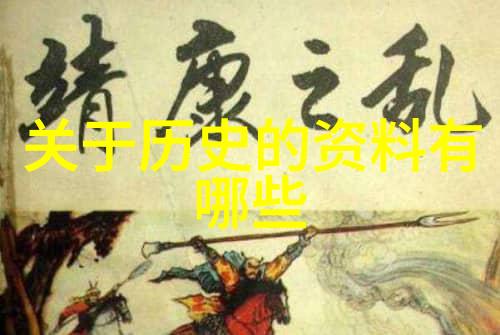 靖康之乱
关于历史的资料有
哪些